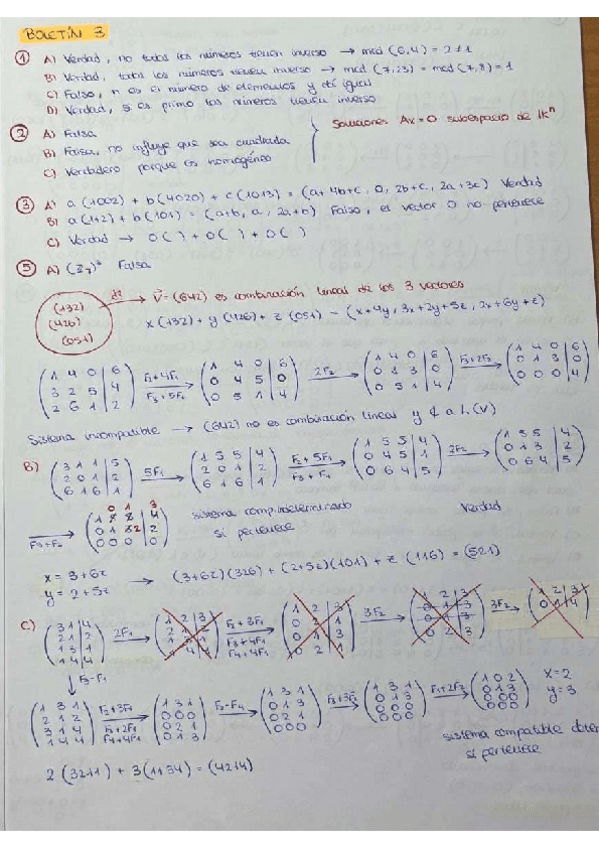 BOLETÍN 3
① A) Verdad, no todos los números tienen inverso → mcd (6,4) = 2 ≠ 1
B) Verdad, todos los números tienen inverso → mcd (7,23) = mcd (7,8) = 1
C) Falso, n es el número de elementos y da igual
D) Verdad, si es primo los números tienen inverso
② A) Falsa
B) Falsa, no influye que sea cuadrada
C) Verdadero porque es homogéneo
Soluciones Ax=0 subespacio de K^n
③ A) a (1002) + b (4020) + c (1013) = (a+4b+c, 0, 2b+c, 2a+3c) Verdad
B) a (112) + b (101) = (a+b, a, 2a+b) Falso, el vector 0 no pertenece
C) Verdad → 0( ) + 0( ) + 0( )
⑤ A) (Z7)³ Falsa
(132)
(426)
(051)
→ V = (642) es combinación lineal de los 3 vectores
x (132) + y (426) + z (051) = (x+4y, 3x+2y+5z, 2x+6y+z)
(1 4 0 | 6
3 2 5 | 4
2 6 1 | 2)
F2+4F1
F3+5F1
(1 4 0 | 6
0 4 5 | 0
0 5 1 | 4)
2F2
(1 4 0 | 6
0 1 3 | 0
0 5 1 | 4)
F3+2F2
(1 4 0 | 6
0 1 3 | 0
0 0 0 | 4)
Sistema incompatible → (642) no es combinación lineal y ∉ a L(V)
B)
(3 1 1 | 5
2 0 1 | 2
6 1 6 | 1)
5F1
(1 5 5 | 4
2 0 1 | 2
6 1 6 | 1)
F2 + 5F1
F3 + F1
(1 5 5 | 4
0 4 5 | 1
0 6 4 | 5)
2F2
(1 5 5 | 4
0 1 3 | 2
0 6 4 | 5)
F3+F2
0 1 3
0 0 0 | 0)
sistema comp. indeterminado
si pertenece
Verdad
x = 3+6z
y = 2+5z
→ (3+6z)(326) + (2+5z)(101) + z (116) = (521)
C)
(3 1 4
2 1 2
1 3 1
1 4 4)
2F1
F2+3F1
F3+4F1
F4+4F1
3F2
3F2
↓ F3-F1
(1 3 1
2 1 2
3 1 4
1 4 4)
F3+2F1
F4+4F1
(1 3 1
0 0 0
0 2 1
0 1 3)
F2-F4
(1 3 1
0 1 3
0 2 1
0 0 0)
(1 3 1
0 1 3
0 0 0
0 0 0)
F1+2F2
(1 0 2
0 1 3
0 0 0
0 0 0)
x=2
y=3
sistema compatible deter
si pertenece
2 (3211) + 3 (1134) = (4214)